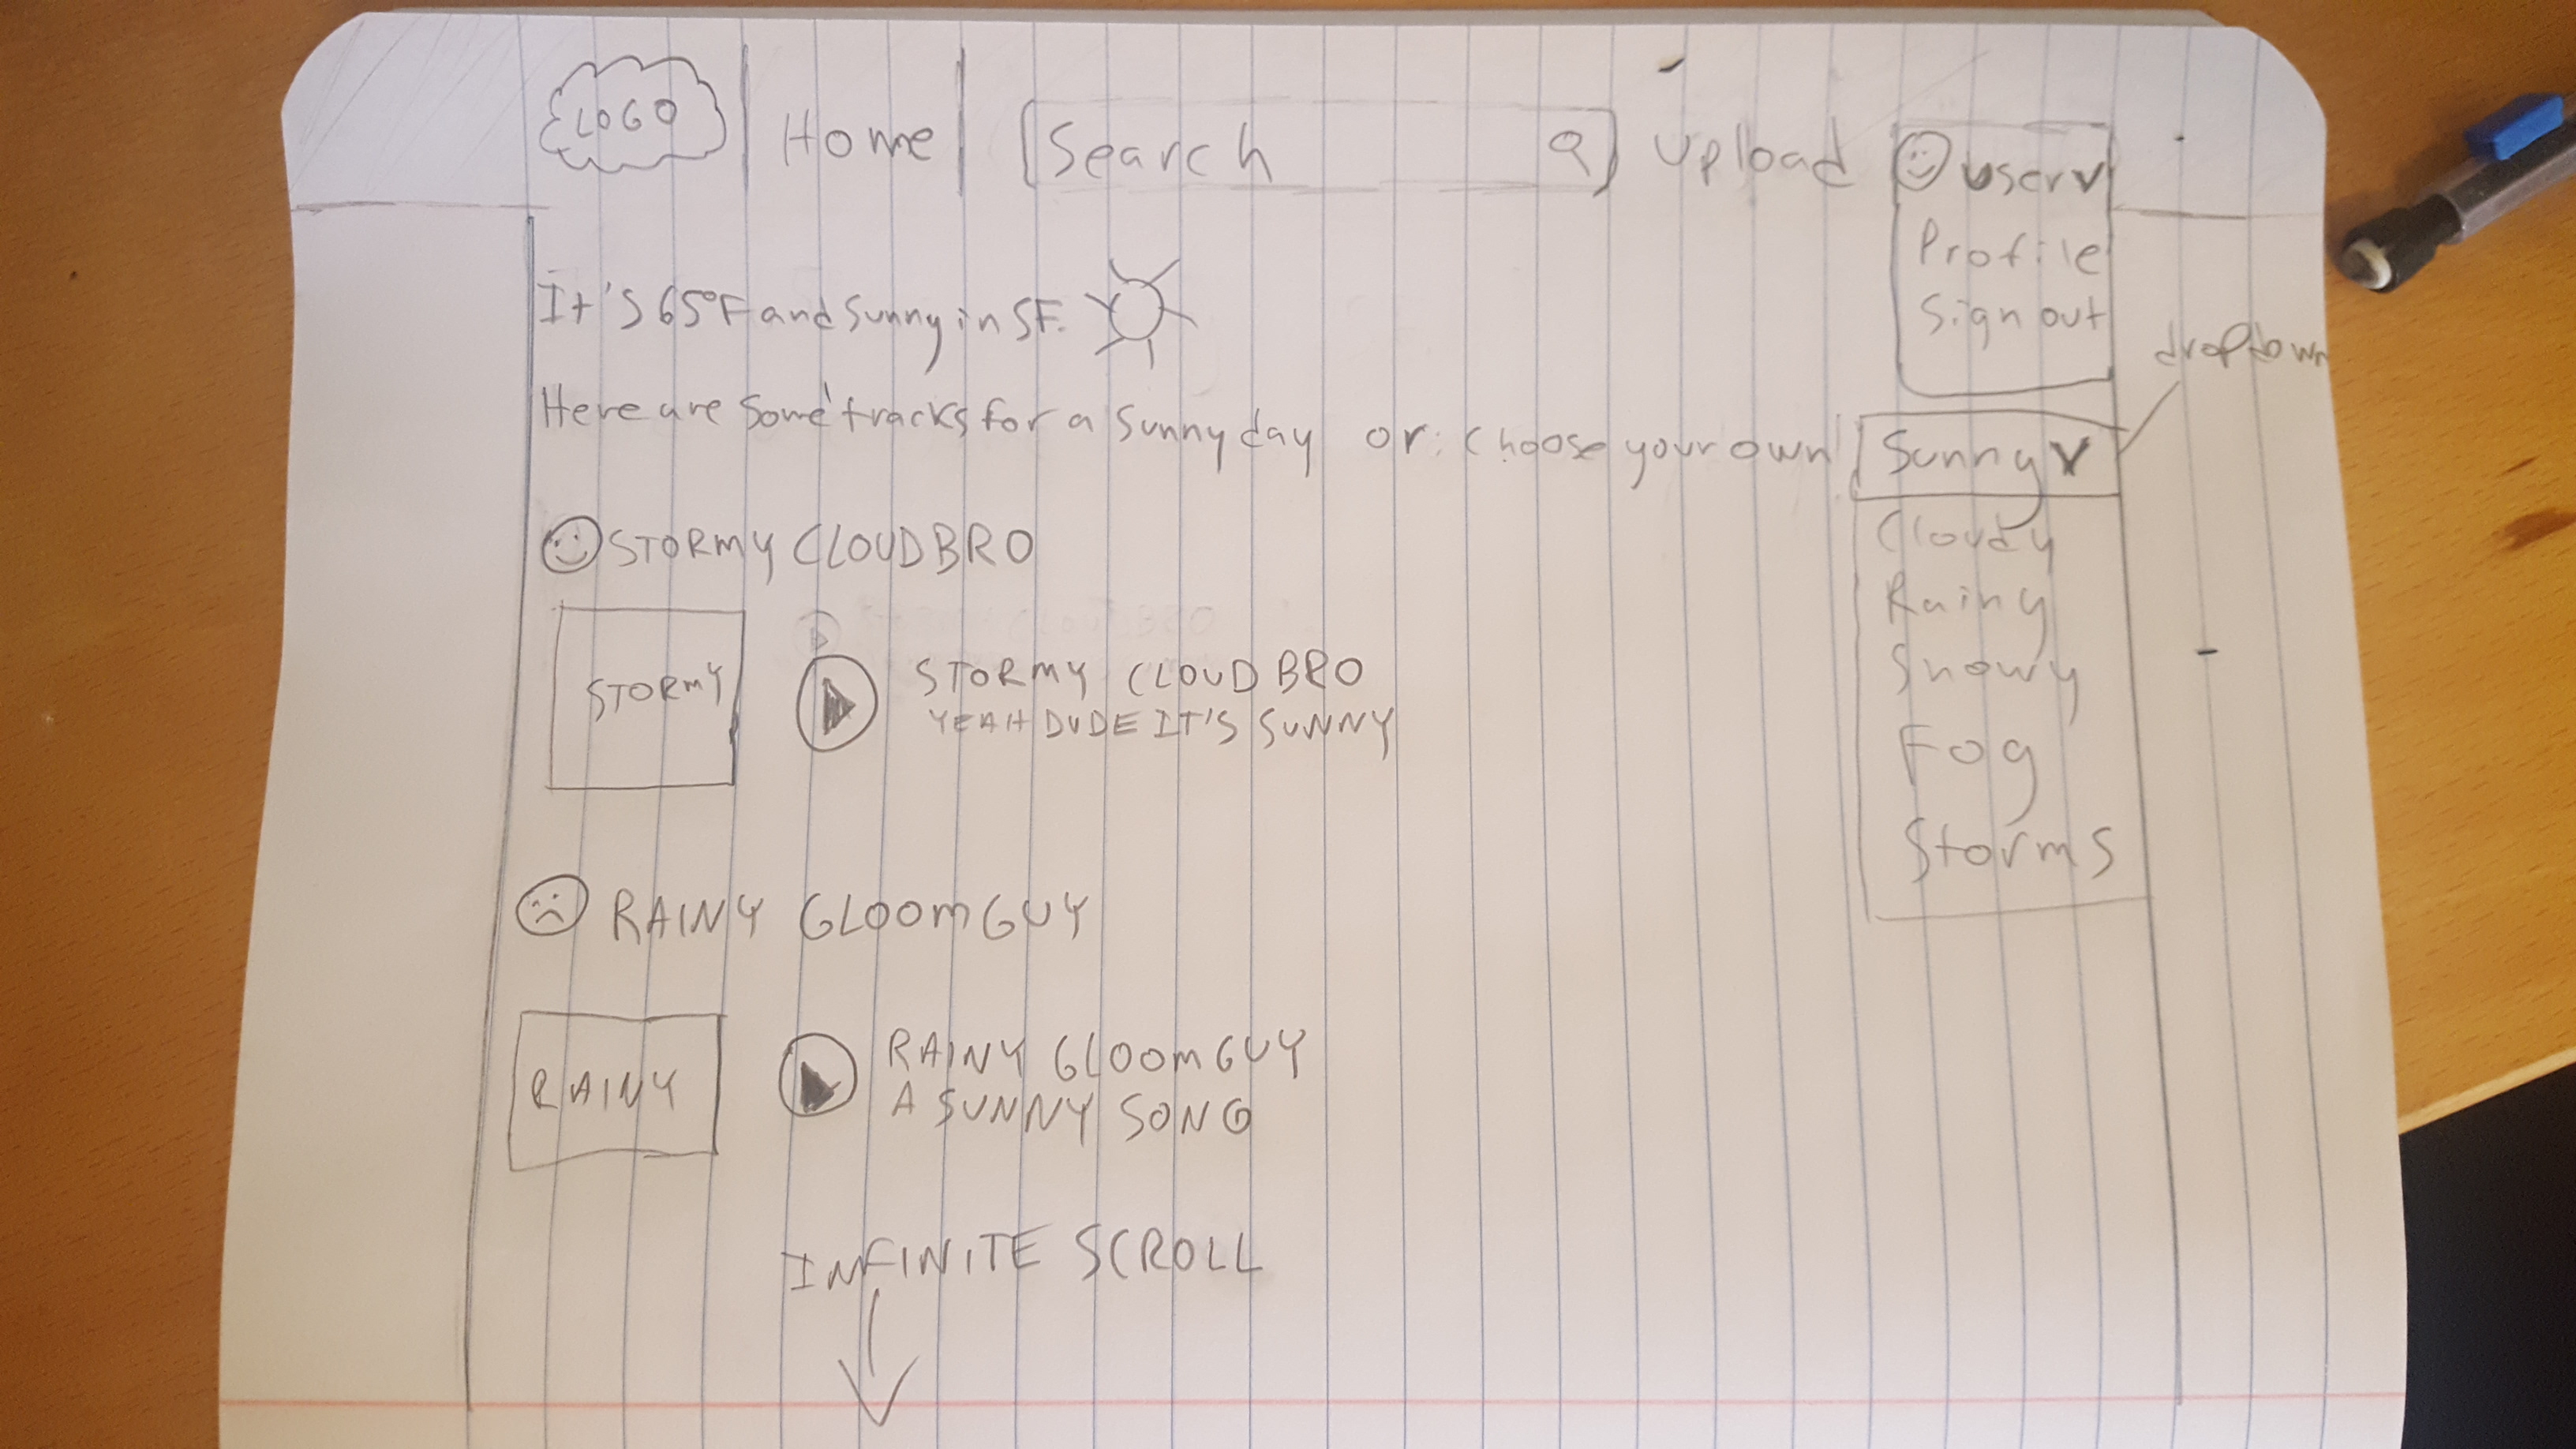 LOGO
Home
Search
upload
user
Profile
Sign out
It's 65°F and Sunny in SF.
dropdown
Here are some tracks for a sunny day or: choose your own
Sunny
Cloudy
Rainy
Snowy
Fog
Storms
STORMY CLOUDBRO
STORMY
STORMY CLOUD BRO
YEAH DUDE IT'S SUNNY
RAINY GLOOMGUY
RAINY
RAINY GLOOMGUY
A SUNNY SONG
INFINITE SCROLL